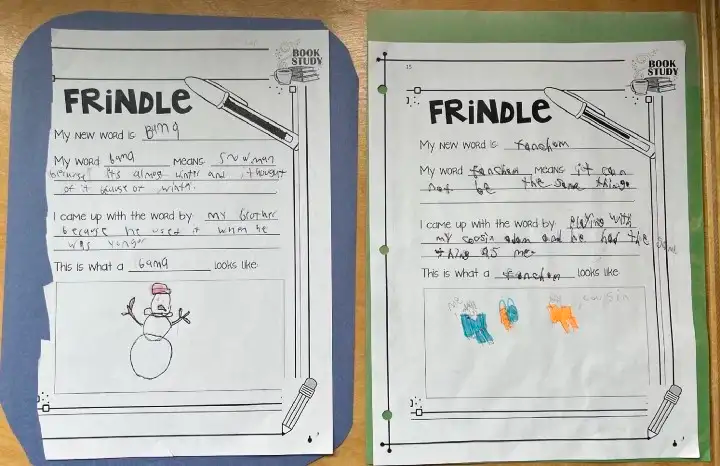 BOOK
STUDY
FRINDLE
My new word is Bang
My word bang means snowman
because its almost winter and i thought
of it because of winter.
I came up with the word by my brother
because he used it when he
was younger
This is what a bang looks like:
15
BOOK
STUDY
FRINDLE
My new word is
My word means it can
not be the same things
I came up with the word by playing with
my cousin adam and he had the same
thing as me.
This is what a looks like
me
cousin